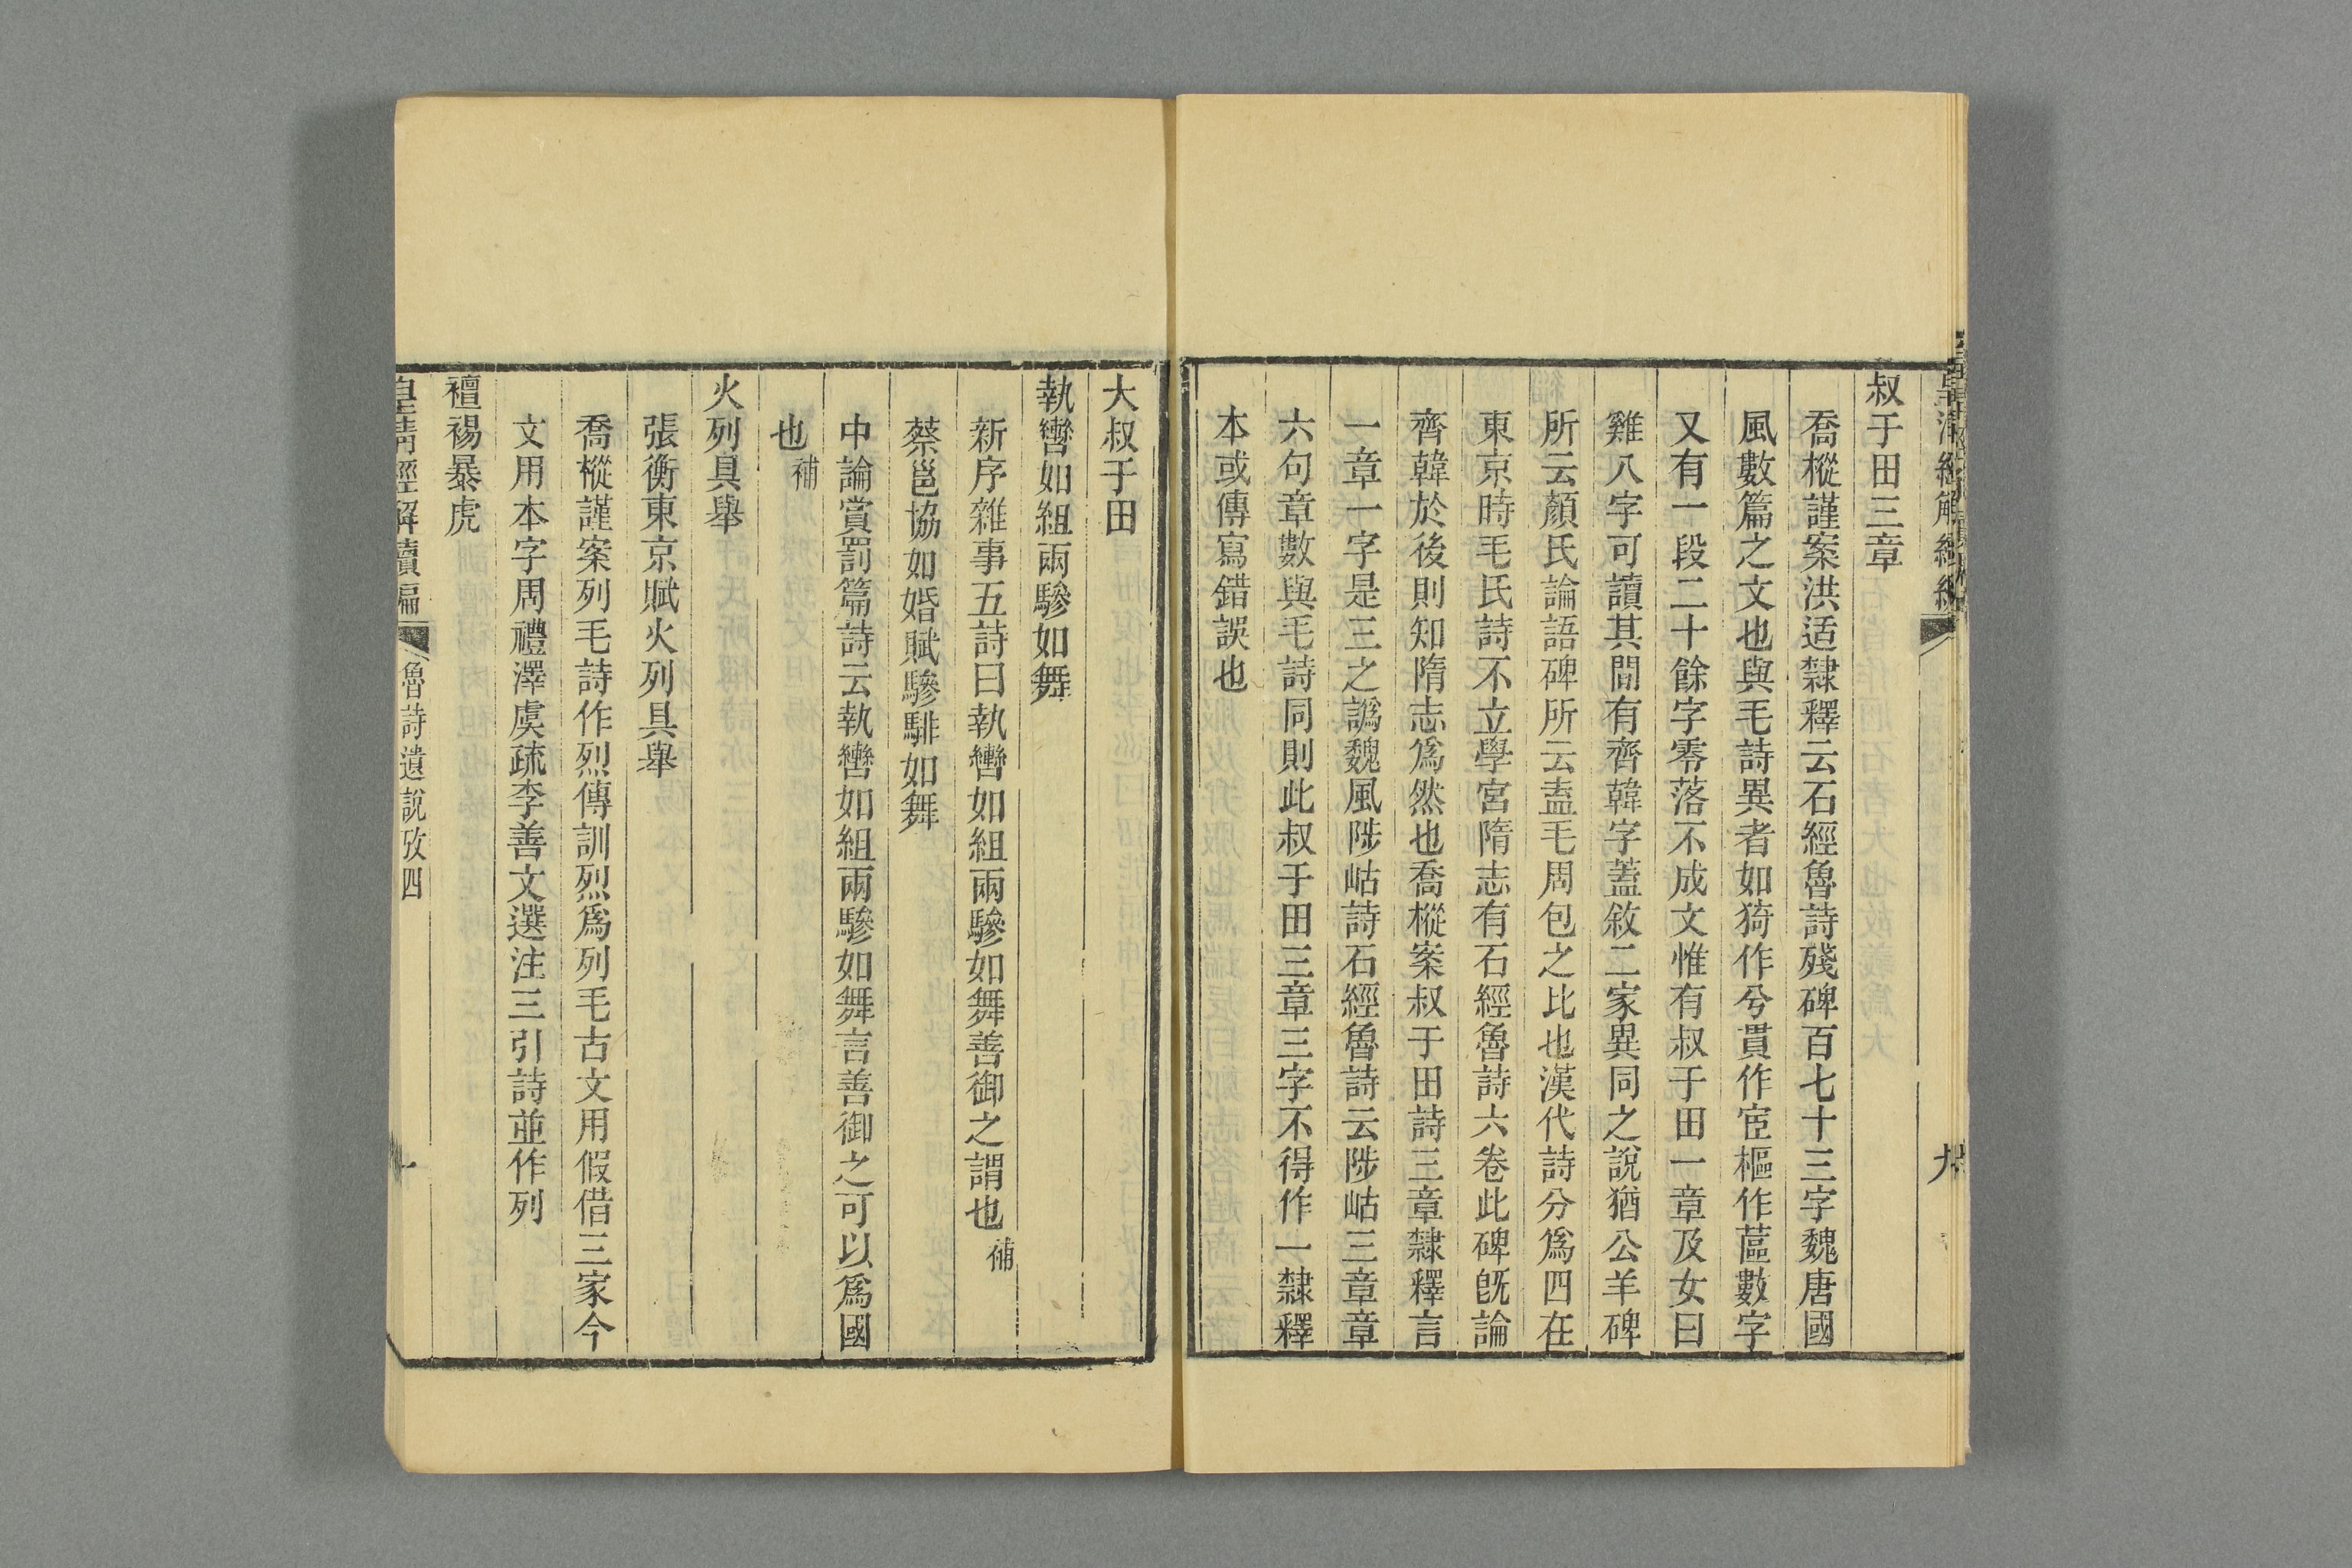 叔于田三章
喬樅謹案洪适隸釋云石經魯詩殘碑百七十三字魏唐國
風數篇之文也與毛詩異者如猗作兮貫作宦樞作蓲數字
又有一段二十餘字零落不成文惟有叔于田一章及女曰
雞八字可讀其間有齊韓字蓋敘二家異同之說猶公羊碑
所云顏氏論語碑所云盍毛周包之比也漢代詩分爲四在
東京時毛氏詩不立學宮隋志有石經魯詩六卷此碑旣論
齊韓於後則知隋志爲然也喬樅案叔于田詩三章隸釋言
一章一字是三之譌魏風陟岵詩石經魯詩云陟岵三章章
六句章數與毛詩同則此叔于田三章三字不得作一隸釋
本或傳寫錯誤也
九
大叔于田
執轡如組兩驂如舞
新序雜事五詩曰執轡如組兩驂如舞善御之謂也補
蔡邕協如婚賦驂騑如舞
中論賞罰篇詩云執轡如組兩驂如舞言善御之可以爲國
也補
火列具舉
張衡東京賦火列具舉
喬樅謹案列毛詩作烈傳訓烈爲列毛古文用假借三家今
文用本字周禮澤虞疏李善文選注三引詩並作列
襢裼暴虎
皇清經解續編
魯詩遺說攷四